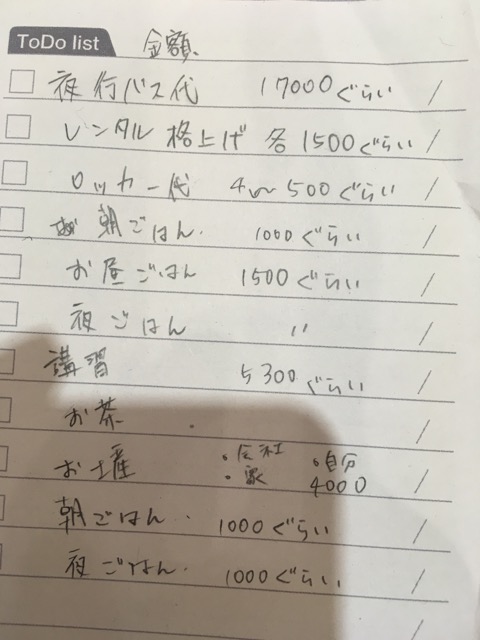 ToDo list 金額
夜行バス代 17000ぐらい /
レンタル 格上げ 各 1500ぐらい /
ロッカー代 4〜500ぐらい /
朝ごはん. 1000ぐらい /
お昼ごはん 1500ぐらい /
夜ごはん 〃 /
講習 5300ぐらい /
お茶 /
お土産 ・会社 ・自分
・家 4000 /
朝ごはん. 1000ぐらい /
夜ごはん. 1000ぐらい /
/